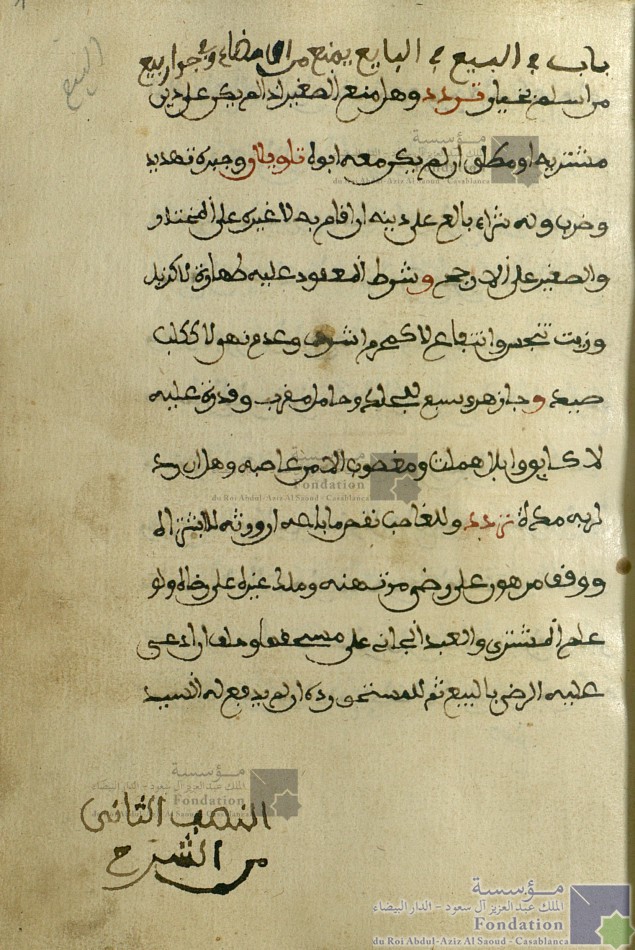 البيع
باب في البيع في البايع يمنع من الامضاء وفي جواز بيع
من اسلم بخيار تردد وهل منع الصغير اذا لم يكن على دين
مشتريه او مطلق ان لم يكن معه ابوه تاويلان وجبره تهديد
وضرب وله شراء بالغ على دينه ان اقام به لا غيره على المختار
والصغير على الارجح وشرط المعقود عليه طهارة لا كزبل
وزيت تنجس وانتفاع لا كمحرم اشرف وعدم نهي لا ككلب
صيد وجاز هر وسبع للجلد وحامل مقرب وقدرة عليه
لا كابق وابل اهملت ومغصوب الا من غاصبه وهل ان رد
لربه مدة تردد وللغاصب نقض ما باعه ان ورثه لا اشتراه
ووقف مرهون على رضى مرتهنه وملك غيره على رضاه ولو
علم المشتري والعبد الجاني على مستحقها وحلف ان ادعي
عليه الرضى بالبيع ثم للمستحق رده ان لم يدفع له السيد
النصب الثاني
من الشرح
مؤسسة
الملك عبد العزيز آل سعود - الدار البيضاء
Fondation
du Roi Abdul-Aziz Al Saoud - Casablanca